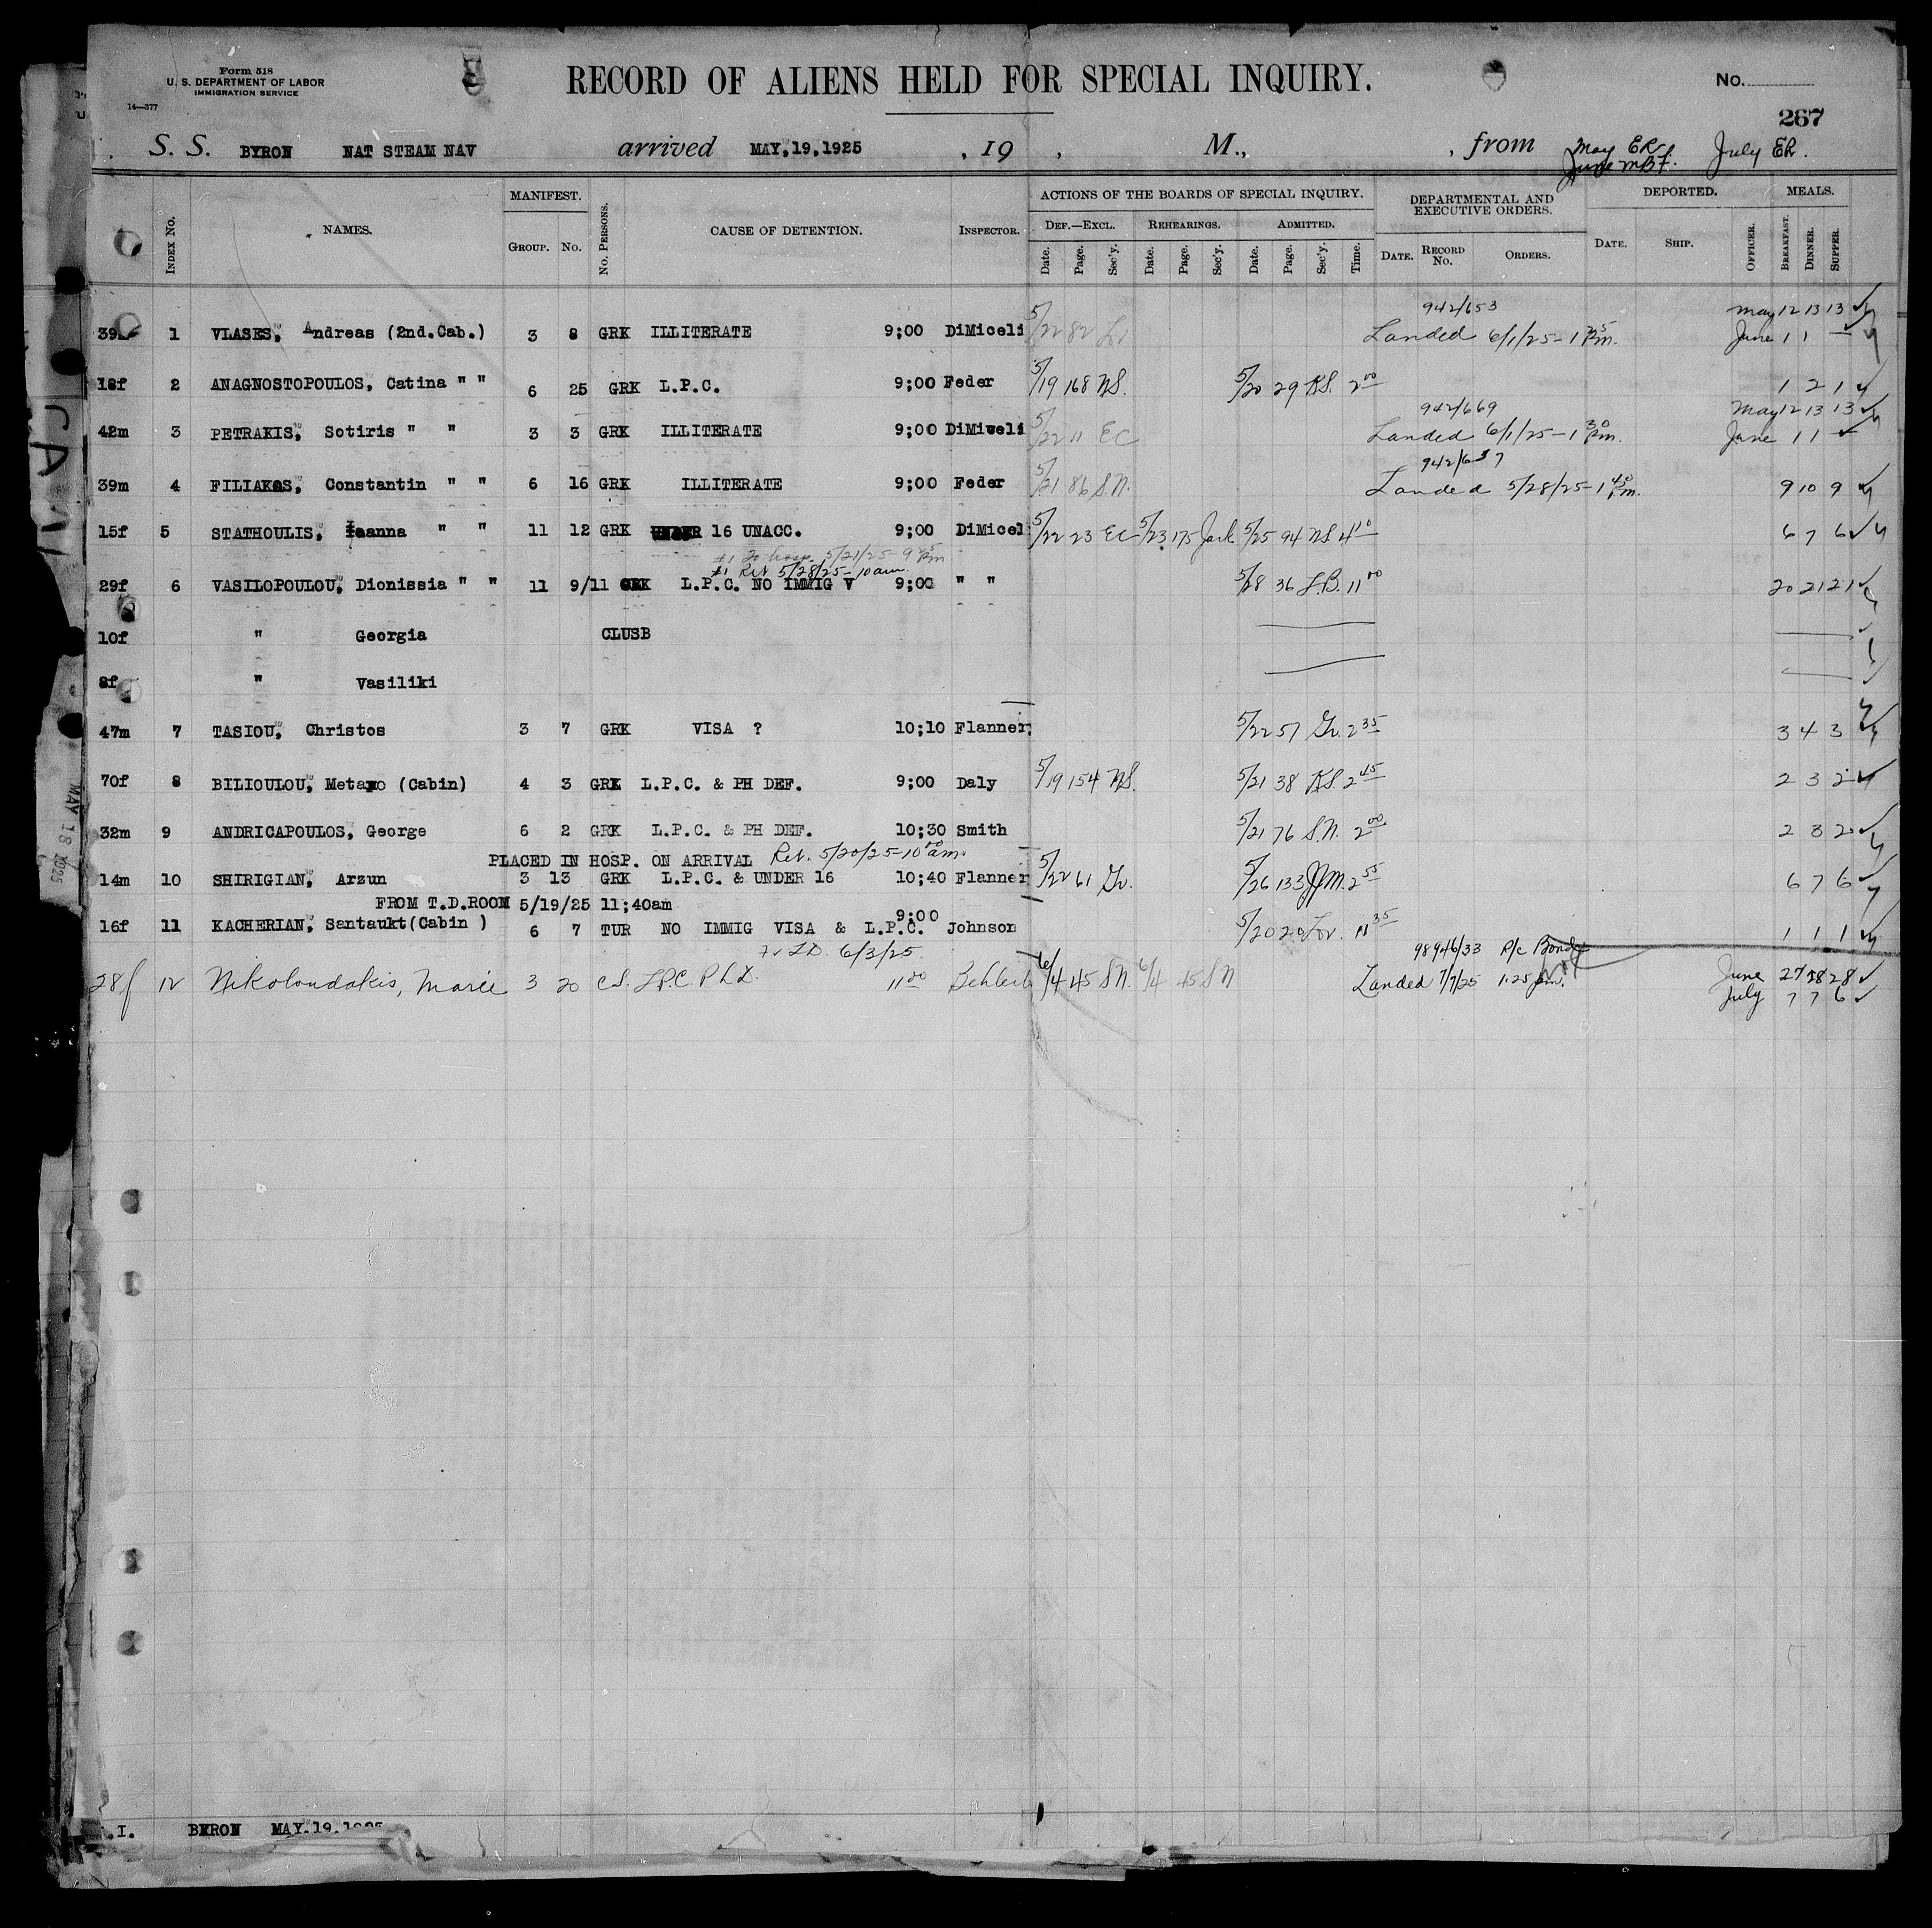 Form 518
U. S. DEPARTMENT OF LABOR
IMMIGRATION SERVICE
14—377
RECORD OF ALIENS HELD FOR SPECIAL INQUIRY.
No.
267
S. S. BYRON NAT STEAM NAV arrived MAY,19,1925 , 19 , M., , from May ER July ER.
June MBF.
INDEX No. NAMES. MANIFEST. GROUP. No. No. PERSONS. CAUSE OF DETENTION. INSPECTOR. ACTIONS OF THE BOARDS OF SPECIAL INQUIRY. DEF.—EXCL. Date. Page. Sec'y. REHEARINGS. Date. Page. Sec'y. ADMITTED. Date. Page. Sec'y. Time. DEPARTMENTAL AND EXECUTIVE ORDERS. DATE. RECORD No. ORDERS. DEPORTED. DATE. SHIP. OFFICER. MEALS. BREAKFAST. DINNER. SUPPER.
942/653 May 12 13 13
39m 1 VLASES, Andreas (2nd.Cab.) 3 8 GRK ILLITERATE 9;00 DiMiceli 5/22 82 Landed 6/1/25 - 1 25 Pm. June 1 1 —
18f 2 ANAGNOSTOPOULOS, Catina " " 6 25 GRK L.P.C. 9;00 Feder 5/19 168 NS. 5/20 29 KS. 2 00 1 2 1
942/669 May 12 13 13
42m 3 PETRAKIS, Sotiris " " 3 3 GRK ILLITERATE 9;00 DiMiceli 5/22 11 EC Landed 6/1/25 - 1 30 Pm. June 1 1 —
942/637
39m 4 FILIAKOS, Constantin " " 6 16 GRK ILLITERATE 9;00 Feder 5/21 86 S.N. Landed 5/28/25 - 1 40 Pm. 9 10 9
15f 5 STATHOULIS, Ioanna " " 11 12 GRK UNDER 16 UNACC. 9;00 DiMicel 5/22 23 EC 5/23 175 Jack 5/25 94 NS 4 10 6 7 6
#1 To hosp. 5/21/25 - 9 Pm
#1 Ret 5/28/25 - 10 am.
29f 6 VASILOPOULOU, Dionissia " " 11 9/11 GRK L.P.C. NO IMMIG V 9;00 " " 5/28 36 L.B. 11 00 20 21 21
10f " Georgia CLUSB
8f " Vasiliki
47m 7 TASIOU, Christos 3 7 GRK VISA ? 10;10 Flanner 5/22 57 Gr. 2 35 3 4 3
70f 8 BILIOULOU, Metaxo (Cabin) 4 3 GRK L.P.C. & PH DEF. 9;00 Daly 5/19 154 NS. 5/21 38 KS. 2 45 2 3 2
32m 9 ANDRICAPOULOS, George 6 2 GRK L.P.C. & PH DEF. 10;30 Smith 5/21 76 S.N. 2 00 2 3 2
PLACED IN HOSP. ON ARRIVAL Ret. 5/20/25 - 10 00 am.
14m 10 SHIRIGIAN, Arzun 3 13 GRK L.P.C. & UNDER 16 10;40 Flanner 5/22 61 Gr. 5/26 133 JJM. 2 55 6 7 6
FROM T.D.ROOM 5/19/25 11;40am
16f 11 KACHERIAN, Santaukt(Cabin ) 6 7 TUR NO IMMIG VISA & L.P.C. 9:00 Johnson 5/20 20 Lov. 11 35 1 1 1
6/3/25. 98946/33 P/c Bond
28f 12 Nikoloudakis, Marie 3 20 L.P.C. Ph D. 11 00 6/4 45 SN. 6/4 45 SN Landed 7/7/25 1.25 pm. June 27 28 28
July 7 7 6
MAY 18 1925
.I. BYRON MAY.19.1925